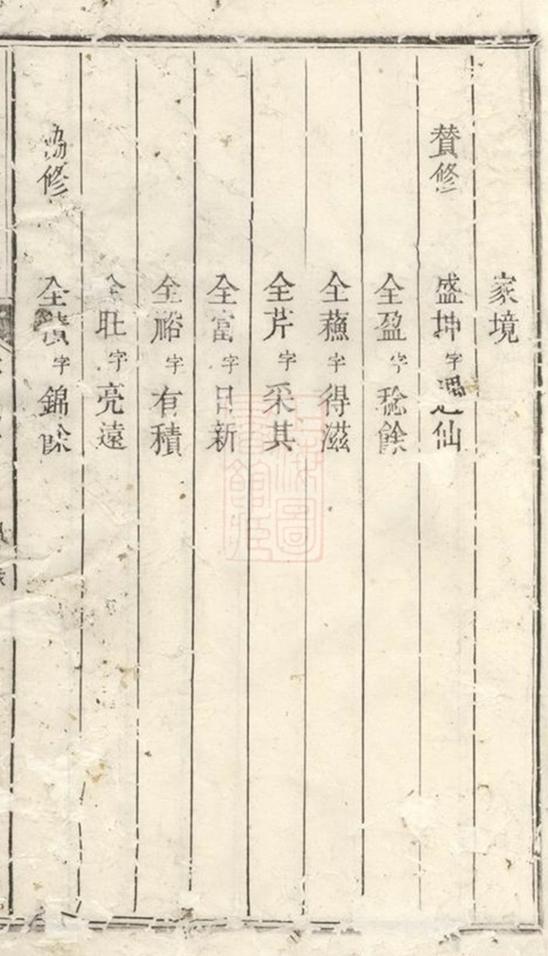 家境
賛修 盛坤字遇仙
仝盈字稔餘
仝蘓字得滋
仝芹字采其
仝富字日新
仝裕字有積
仝玭字亮遠
協修 仝字錦